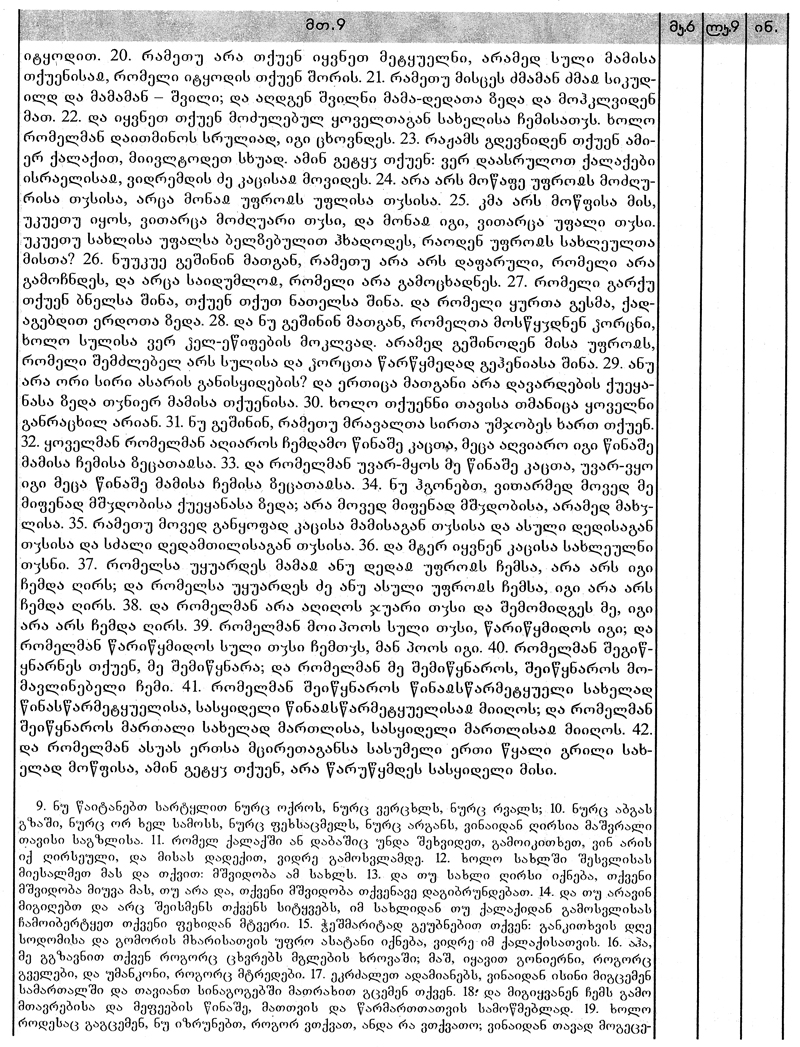 მთ.9 მკ.6 ლკ.9 ინ.
იტყოდით. 20. რამეთუ არა თქუენ იყვნეთ მეტყუელნი, არამედ სული მამისა
თქუენისაჲ, რომელი იტყოდის თქუენ შორის. 21. რამეთუ მისცეს ძმამან ძმაჲ სიკუდ-
ილდ და მამამან – შვილი; და აღდგენ შვილნი მამა-დედათა ზედა და მოჰკლვიდენ
მათ. 22. და იყვნეთ თქუენ მოძულებულ ყოველთაგან სახელისა ჩემისათჳს. ხოლო
რომელმან დაითმინოს სრულიად, იგი ცხოვნდეს. 23. რაჟამს გდევნიდენ თქუენ ამი-
ერ ქალაქით, მიივლტოდეთ სხუად. ამინ გეტყჳ თქუენ: ვერ დაასრულოთ ქალაქები
ისრაელისაჲ, ვიდრემდის ძე კაცისაჲ მოვიდეს. 24. არა არს მოწაფე უფროჲს მოძღუ-
რისა თჳსისა, არცა მონაჲ უფროჲს უფლისა თჳსისა. 25. კმა არს მოწფისა მის,
უკუეთუ იყოს, ვითარცა მოძღუარი თჳსი, და მონაჲ იგი, ვითარცა უფალი თჳსი.
უკუეთუ სახლისა უფალსა ბელზებულით ჰხადოდეს, რაოდენ უფროჲს სახლეულთა
მისთა? 26. ნუუკუე გეშინინ მათგან, რამეთუ არა არს დაფარული, რომელი არა
გამოჩნდეს, და არცა საიდუმლოჲ, რომელი არა გამოცხადნეს. 27. რომელი გარქუ
თქუენ ბნელსა შინა, თქუენ თქუთ ნათელსა შინა. და რომელი ყურთა გესმა, ქად-
აგებდით ერდოთა ზედა. 28. და ნუ გეშინინ მათგან, რომელთა მოსწყჳდნენ ჴორცნი,
ხოლო სულისა ვერ ჴელ-ეწიფების მოკლვად. არამედ გეშინოდენ მისა უფროჲს,
რომელი შემძლებელ არს სულისა და ჴორცთა წარწყმედად გეჰენიასა შინა. 29. ანუ
არა ორი სირი ასარის განისყიდების? და ერთიცა მათგანი არა დავარდების ქუეყა-
ნასა ზედა თჳნიერ მამისა თქუენისა. 30. ხოლო თქუენნი თავისა თმანიცა ყოველნი
განრაცხილ არიან. 31. ნუ გეშინინ, რამეთუ მრავალთა სირთა უმჯობეს ხართ თქუენ.
32. ყოველმან რომელმან აღიაროს ჩემდამო წინაშე კაცთა, მეცა აღვიარო იგი წინაშე
მამისა ჩემისა ზეცათაჲსა. 33. და რომელმან უვარ-მყოს მე წინაშე კაცთა, უვარ-ვყო
იგი მეცა წინაშე მამისა ჩემისა ზეცათაჲსა. 34. ნუ ჰგონებთ, ვითარმედ მოვედ მე
მიფენად მშჳდობისა ქუეყანასა ზედა; არა მოვედ მიფენად მშჳდობისა, არამედ მახჳ-
ლისა. 35. რამეთუ მოვედ განყოფად კაცისა მამისაგან თჳსისა და ასული დედისაგან
თჳსისა და სძალი დედამთილისაგან თჳსისა. 36. და მტერ იყვნენ კაცისა სახლეულნი
თჳსნი. 37. რომელსა უყუარდეს მამაჲ ანუ დედაჲ უფროჲს ჩემსა, არა არს იგი
ჩემდა ღირს; და რომელსა უყუარდეს ძე ანუ ასული უფროჲს ჩემსა, იგი არა არს
ჩემდა ღირს. 38. და რომელმან არა აღიღოს ჯუარი თჳსი და შემომიდგეს მე, იგი
არა არს ჩემდა ღირს. 39. რომელმან მოიპოოს სული თჳსი, წარიწყმიდოს იგი; და
რომელმან წარიწყმიდოს სული თჳსი ჩემთჳს, მან პოოს იგი. 40. რომელმან შეგიწ-
ყნარნეს თქუენ, მე შემიწყნარა; და რომელმან მე შემიწყნაროს, შეიწყნაროს მო-
მავლინებელი ჩემი. 41. რომელმან შეიწყნაროს წინაჲსწარმეტყუელი სახელად
წინასწარმეტყუელისა, სასყიდელი წინაჲსწარმეტყუელისაჲ მიიღოს; და რომელმან
შეიწყნაროს მართალი სახელად მართლისა, სასყიდელი მართლისაჲ მიიღოს. 42.
და რომელმან ასუას ერთსა მცირეთაგანსა სასუმელი ერთი წყალი გრილი სახ-
ელად მოწფისა, ამინ გეტყჳ თქუენ, არა წარუწყმდეს სასყიდელი მისი.
9. ნუ წაიტანებთ სარტყელით ნურც ოქროს, ნურც ვერცხლს, ნურც რვალს; 10. ნურც აბგას
გზაში, ნურც ორ ხელ სამოსს, ნურც ფეხსაცმელს, ნურც არგანს, ვინაიდან ღირსია მაშვრალი
თავისი საგზლისა. 11. რომელ ქალაქში ან დაბაშიც უნდა შეხვიდეთ, გამოიკითხეთ, ვინ არის
იქ ღირსეული, და მისას დადექით, ვიდრე გამოსვლამდე. 12. ხოლო სახლში შესვლისას
მიესალმეთ მას და თქვით: მშვიდობა ამ სახლს. 13. და თუ სახლი ღირსი იქნება, თქვენი
მშვიდობა მიუვა მას, თუ არა და, თქვენი მშვიდობა თქვენავე დაგიბრუნდებათ. 14. და თუ არავინ
მიგიღებთ და არც შეისმენს თქვენს სიტყვებს, იმ სახლიდან თუ ქალაქიდან გამოსვლისას
ჩამოიბერტყეთ თქვენი ფეხიდან მტვერი. 15. ჭეშმარიტად გეუბნებით თქვენ: განკითხვის დღე
სოდომისა და გომორის მხარისათვის უფრო ასატანი იქნება, ვიდრე იმ ქალაქისათვის. 16. აჰა,
მე გგზავნით თქვენ როგორც ცხვრებს მგლების ხროვაში; მაშ, იყავით გონიერნი, როგორც
გველები, და უმანკონი, როგორც მტრედები. 17. ეკრძალეთ ადამიანებს, ვინაიდან ისინი მიგცემენ
სამართალში და თავიანთ სინაგოგებში მათრახით გცემენ თქვენ. 18. და მიგიყვანენ ჩემს გამო
მთავრებისა და მეფეების წინაშე, მათთვის და წარმართთათვის სამოწმებლად. 19. ხოლო
როდესაც გაგცემენ, ნუ იზრუნებთ, როგორ ვთქვათ, ანდა რა ვთქვათო; ვინაიდან თავად მოგეცე-